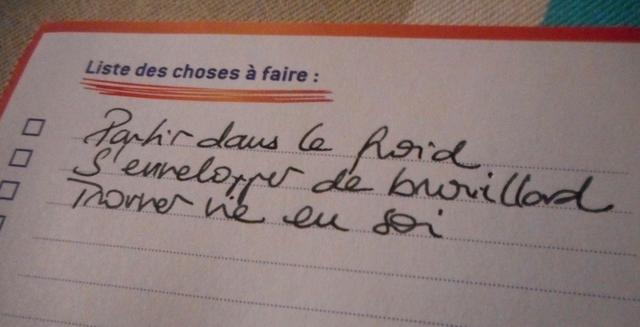 Liste des choses à faire :
Partir dans le froid
S'envelopper de brouillard
Trouver vie en soi